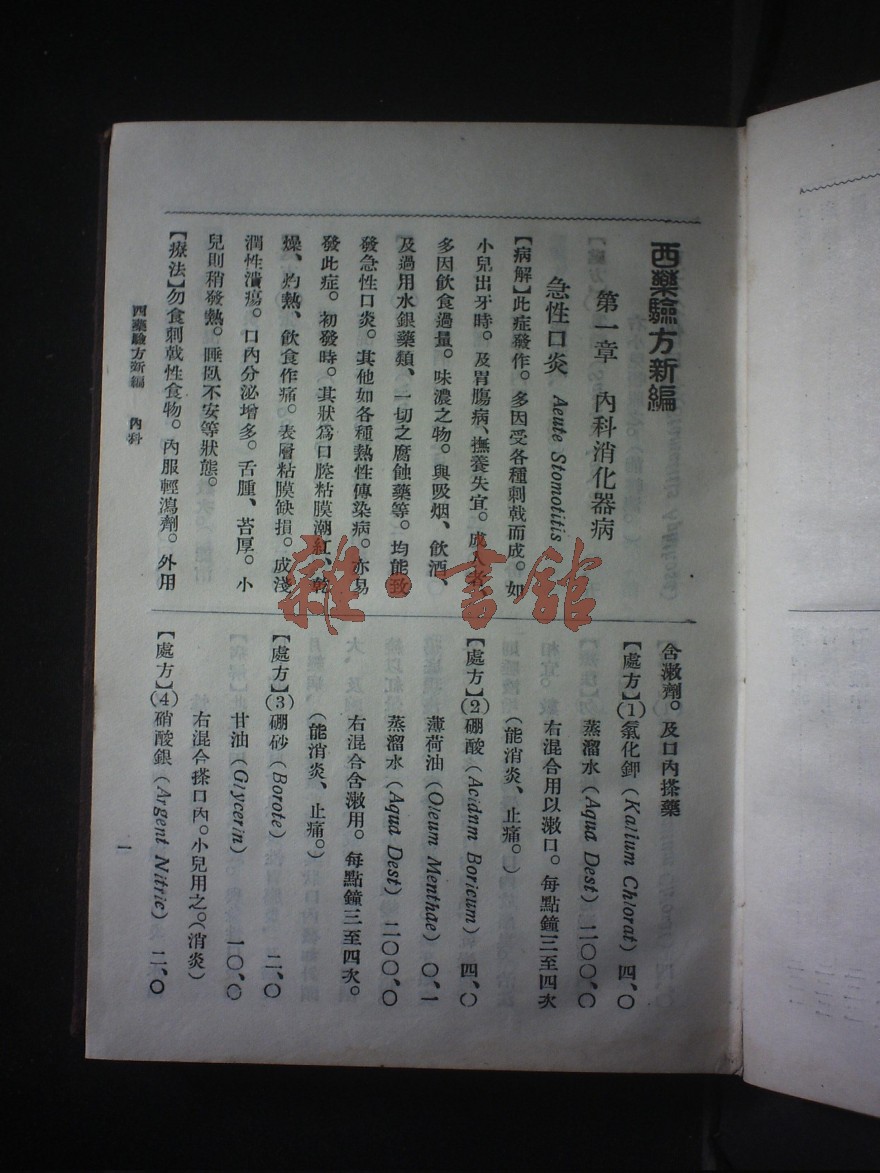 西藥驗方新編
第一章　內科消化器病
急性口炎　Aeute Stomotitis
【病解】此症發作。多因受各種刺戟而成。如
小兒出牙時。及胃腸病、撫養失宜。成人者、
多因飲食過量。味濃之物。與吸烟、飲酒、
及過用水銀藥類、一切之腐蝕藥等。均能致
發急性口炎。其他如各種熱性傳染病。亦易
發此症。初發時。其狀爲口腔粘膜潮紅、乾
燥、灼熱、飲食作痛。表層粘膜缺損。成淺
潤性潰瘍。口內分泌增多。舌腫、苔厚。小
兒則稍發熱。睡臥不安等狀態。
【療法】勿食刺戟性食物。內服輕瀉劑。外用
含漱劑。及口內搽藥
【處方】(1)氯化鉀 (Kalium Chlorat) 四、〇
蒸溜水 (Aqua Dest) 二〇〇、〇
右混合用以漱口。每點鐘三至四次
(能消炎、止痛。)
【處方】(2)硼酸 (Acidnm Boricum) 四、〇
薄荷油 (Oleum Menthae) 〇、1
蒸溜水 (Aqua Dest) 二〇〇、〇
右混合含漱用。每點鐘三至四次。
(能消炎、止痛。)
【處方】(3)硼砂 (Borote) 二、〇
甘油 (Glycerin) 一〇、〇
右混合搽口內。小兒用之。(消炎)
【處方】(4)硝酸銀 (Argent Nitric) 二、〇
西藥驗方新編　內科
一
雜·書館